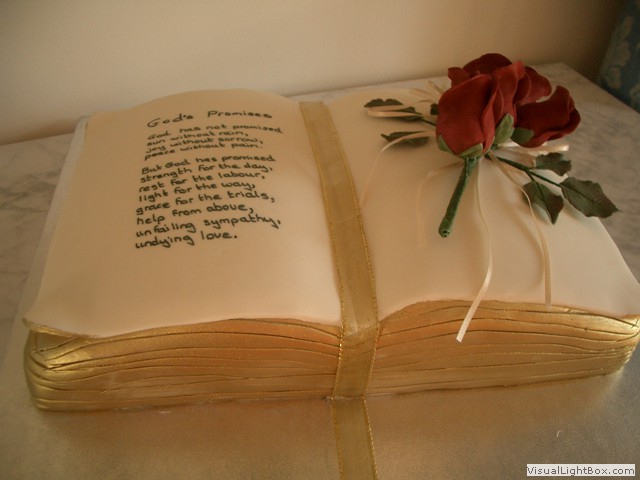 God's Promises
God has not promised
sun without rain,
joy without sorrow,
peace without pain.
But God has promised
strength for the day,
rest for the labour,
light for the way,
grace for the trials,
help from above,
unfailing sympathy,
undying love.
VisualLightBox.com